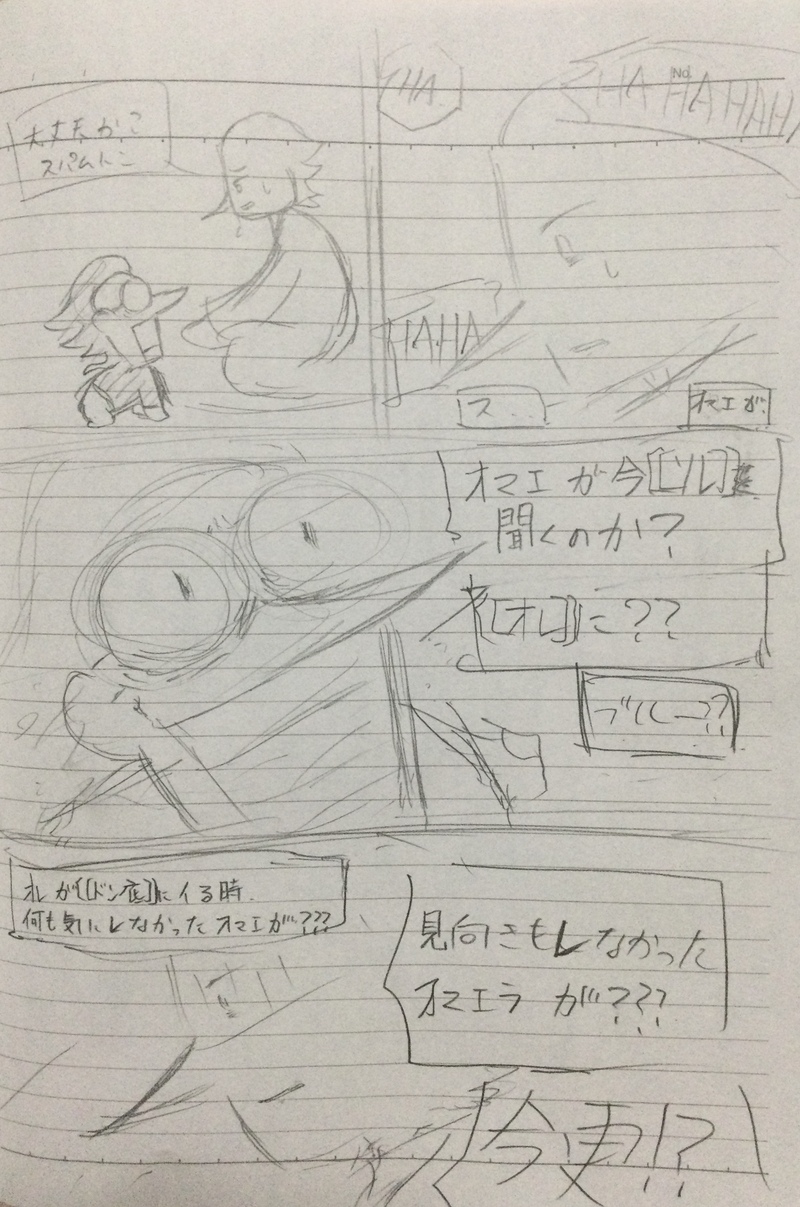 大丈夫かこ
スパムトこ
HA
No.
HA HA HAHA
HAHA
ス..
オマエが
オマエが今[[ソレ]]を
聞くのか?
[[オレ]]に??
ブルー??
オレが[[ドン底]]にイる時
何も気にしなかったオマエが???
見向きもしなかった
オマエラが???
今更!?